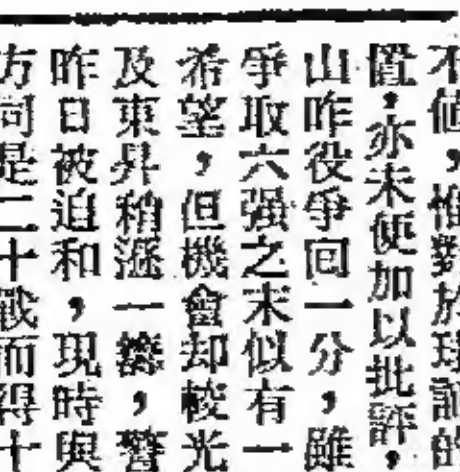 不值,惟對於球證的
置,亦未便加以批評,
山昨役爭回一分,雖
爭取六强之末似有一
希望,但機會却較光
及東昇稍遜一籌,警
昨日被迫和,現時與
方同是二十戰而得十